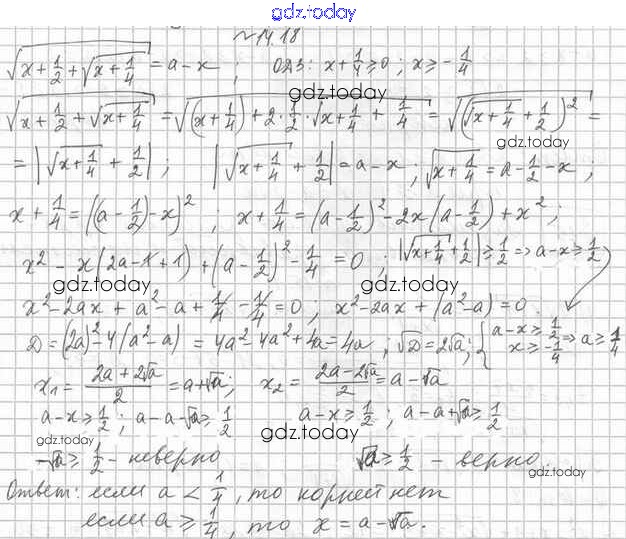 gdz.today
№ 14.18
√(x+1/2+√(x+1/4)) = a-x ; ОДЗ: x+1/4≥0 ; x≥-1/4
√(x+1/2+√(x+1/4)) = √((x+1/4)+2·1/2·√(x+1/4)+1/4) = √((√(x+1/4)+1/2)²) =
gdz.today
= |√(x+1/4)+1/2| ; |√(x+1/4)+1/2| = a-x ; √(x+1/4) = a-1/2-x ;
gdz.today
x+1/4 = ((a-1/2)-x)² ; x+1/4 = (a-1/2)²-2x(a-1/2)+x² ;
x²-x(2a-1+1)+(a-1/2)²-1/4=0 ; |√(x+1/4)+1/2|≥1/2 ⇒ a-x≥1/2
gdz.today
x²-2ax+a²-a+1/4-1/4=0 ; x²-2ax+(a²-a)=0
D=(2a)²-4(a²-a) = 4a²-4a²+4a=4a ; √D=2√a ; { a-x≥1/2 x≥-1/4 ⇒ a≥1/4
x₁ = (2a+2√a)/2 = a+√a ; x₂ = (2a-2√a)/2 = a-√a
gdz.today
a-x≥1/2 ; a-a-√a≥1/2 a-x≥1/2 ; a-a+√a≥1/2
gdz.today
gdz.today
-√a≥1/2 - неверно √a≥1/2 - верно
gdz.today
Ответ: если a<1/4, то корней нет
если a≥1/4, то x=a-√a.